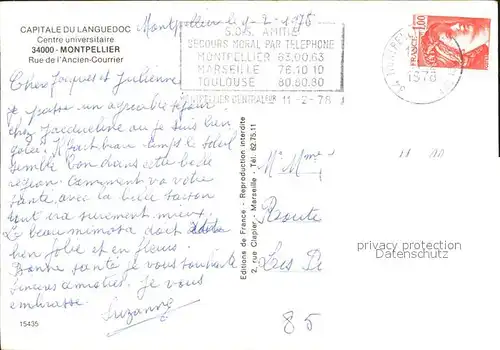 CAPITALE DU LANGUEDOC
Centre universitaire
34000 - MONTPELLIER
Rue de l'Ancien-Courrier
Montpellier le 1-2-1978
S.O.S. AMITIE
SECOURS MORAL PAR TELEPHONE
MONTPELLIER 63.00.63
MARSEILLE 76.10.10
TOULOUSE 80.80.80
MONTPELLIER 11-2-78
1,00
FRANCE
1978
Chers Jacques et Julienne
Je passe un agréable séjour
chez Jacqueline ou je suis bien
gatée. Il fait beau temps le soleil
semble bon dans cette belle
région. Comment va votre
santé, avec la belle saison
tout ira surement mieux.
Le beau mimosa doit
bien joli et en fleurs.
Bonne santé je vous souhaite
sinceres amitiés. Je vous
embrasse.
Suzanne
15435
Editions de France - Reproduction interdite
2, rue Clapier - Marseille - Tél. 62.75.11
Mr Mme
Route
Les
85
privacy protection
Datenschutz